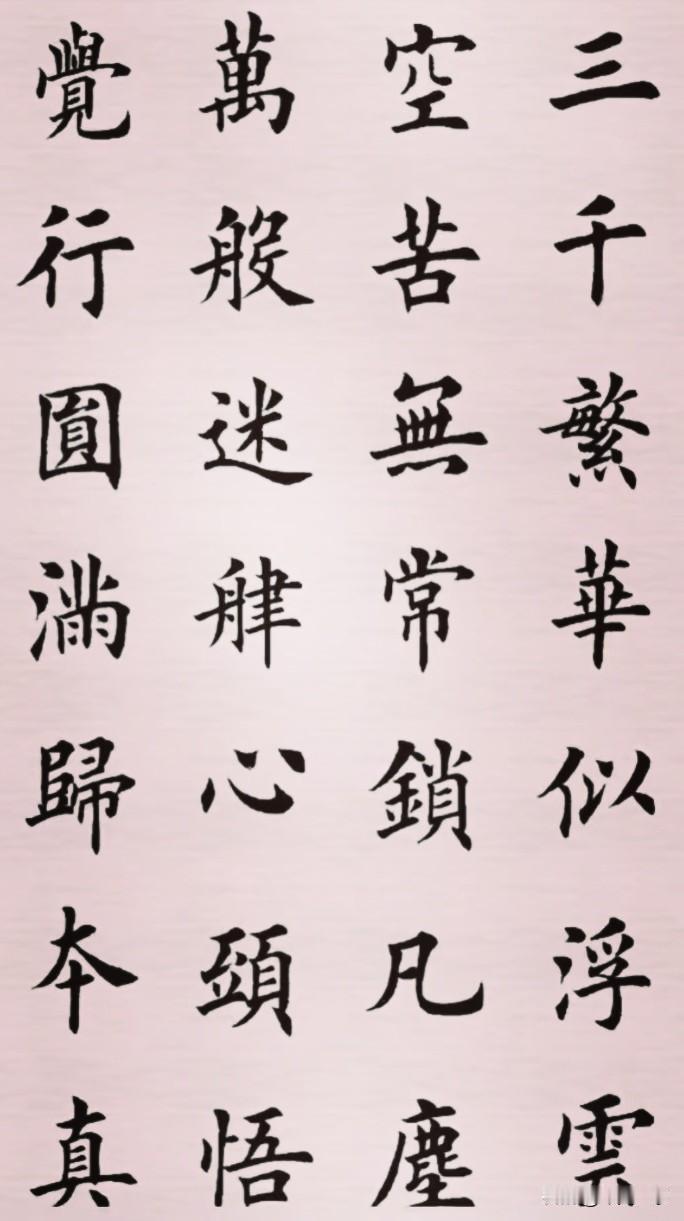 三千繁華似浮雲
空苦無常鎖凡塵
萬般迷津心頭悟
覺行圓滿歸本真